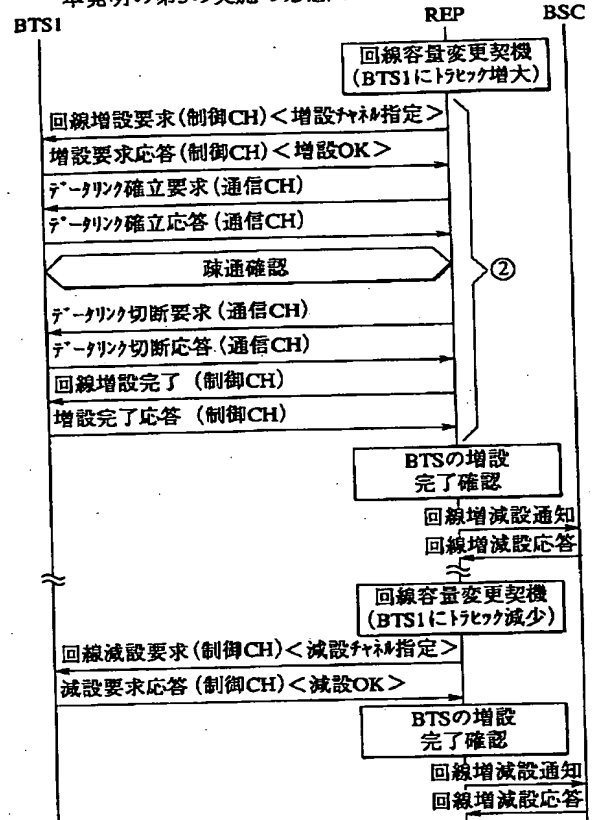 本発明の第3の実施の形態
BTS1
REP
BSC
回線容量変更契機
(BTS1にトラヒック増大)
回線増設要求(制御CH)<増設チャネル指定>
増設要求応答(制御CH)<増設OK>
データリンク確立要求(通信CH)
データリンク確立応答(通信CH)
疎通確認
②
データリンク切断要求(通信CH)
データリンク切断応答(通信CH)
回線増設完了(制御CH)
増設完了応答(制御CH)
BTSの増設
完了確認
回線増減設通知
回線増減設応答
回線容量変更契機
(BTS1にトラヒック減少)
回線減設要求(制御CH)<減設チャネル指定>
減設要求応答(制御CH)<減設OK>
BTSの増設
完了確認
回線増減設通知
回線増減設応答